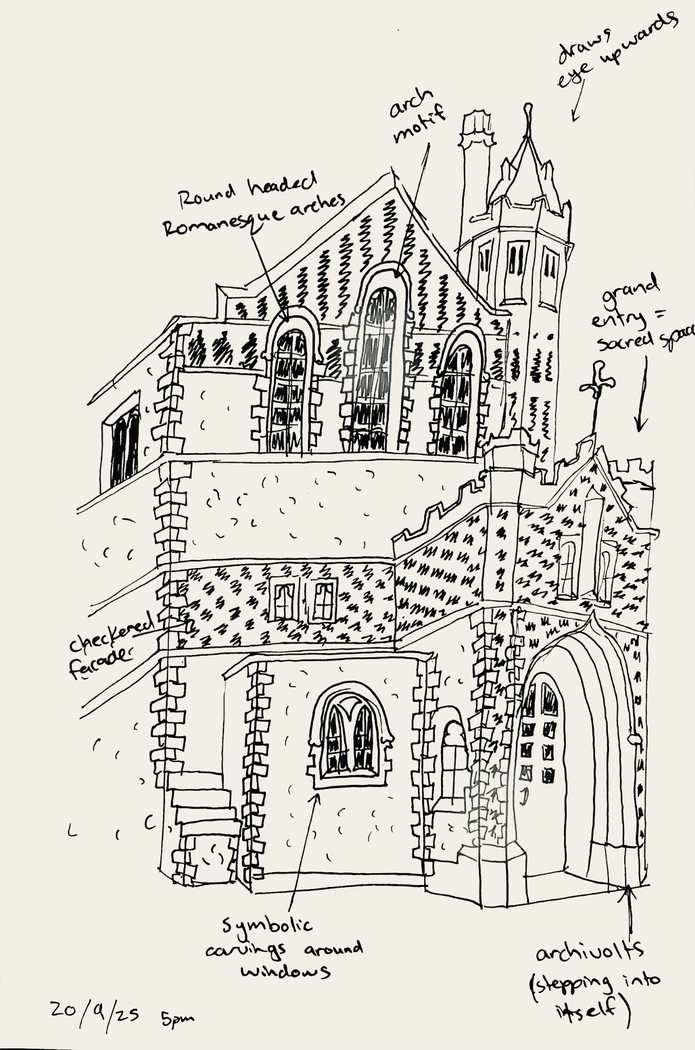 draws
eye upwards
arch
motif
Round headed
Romanesque arches
grand
entry =
sacred space
checkered
facade
Symbolic
carvings around
windows
archivolts
(stepping into
itself)
20/9/25 5pm